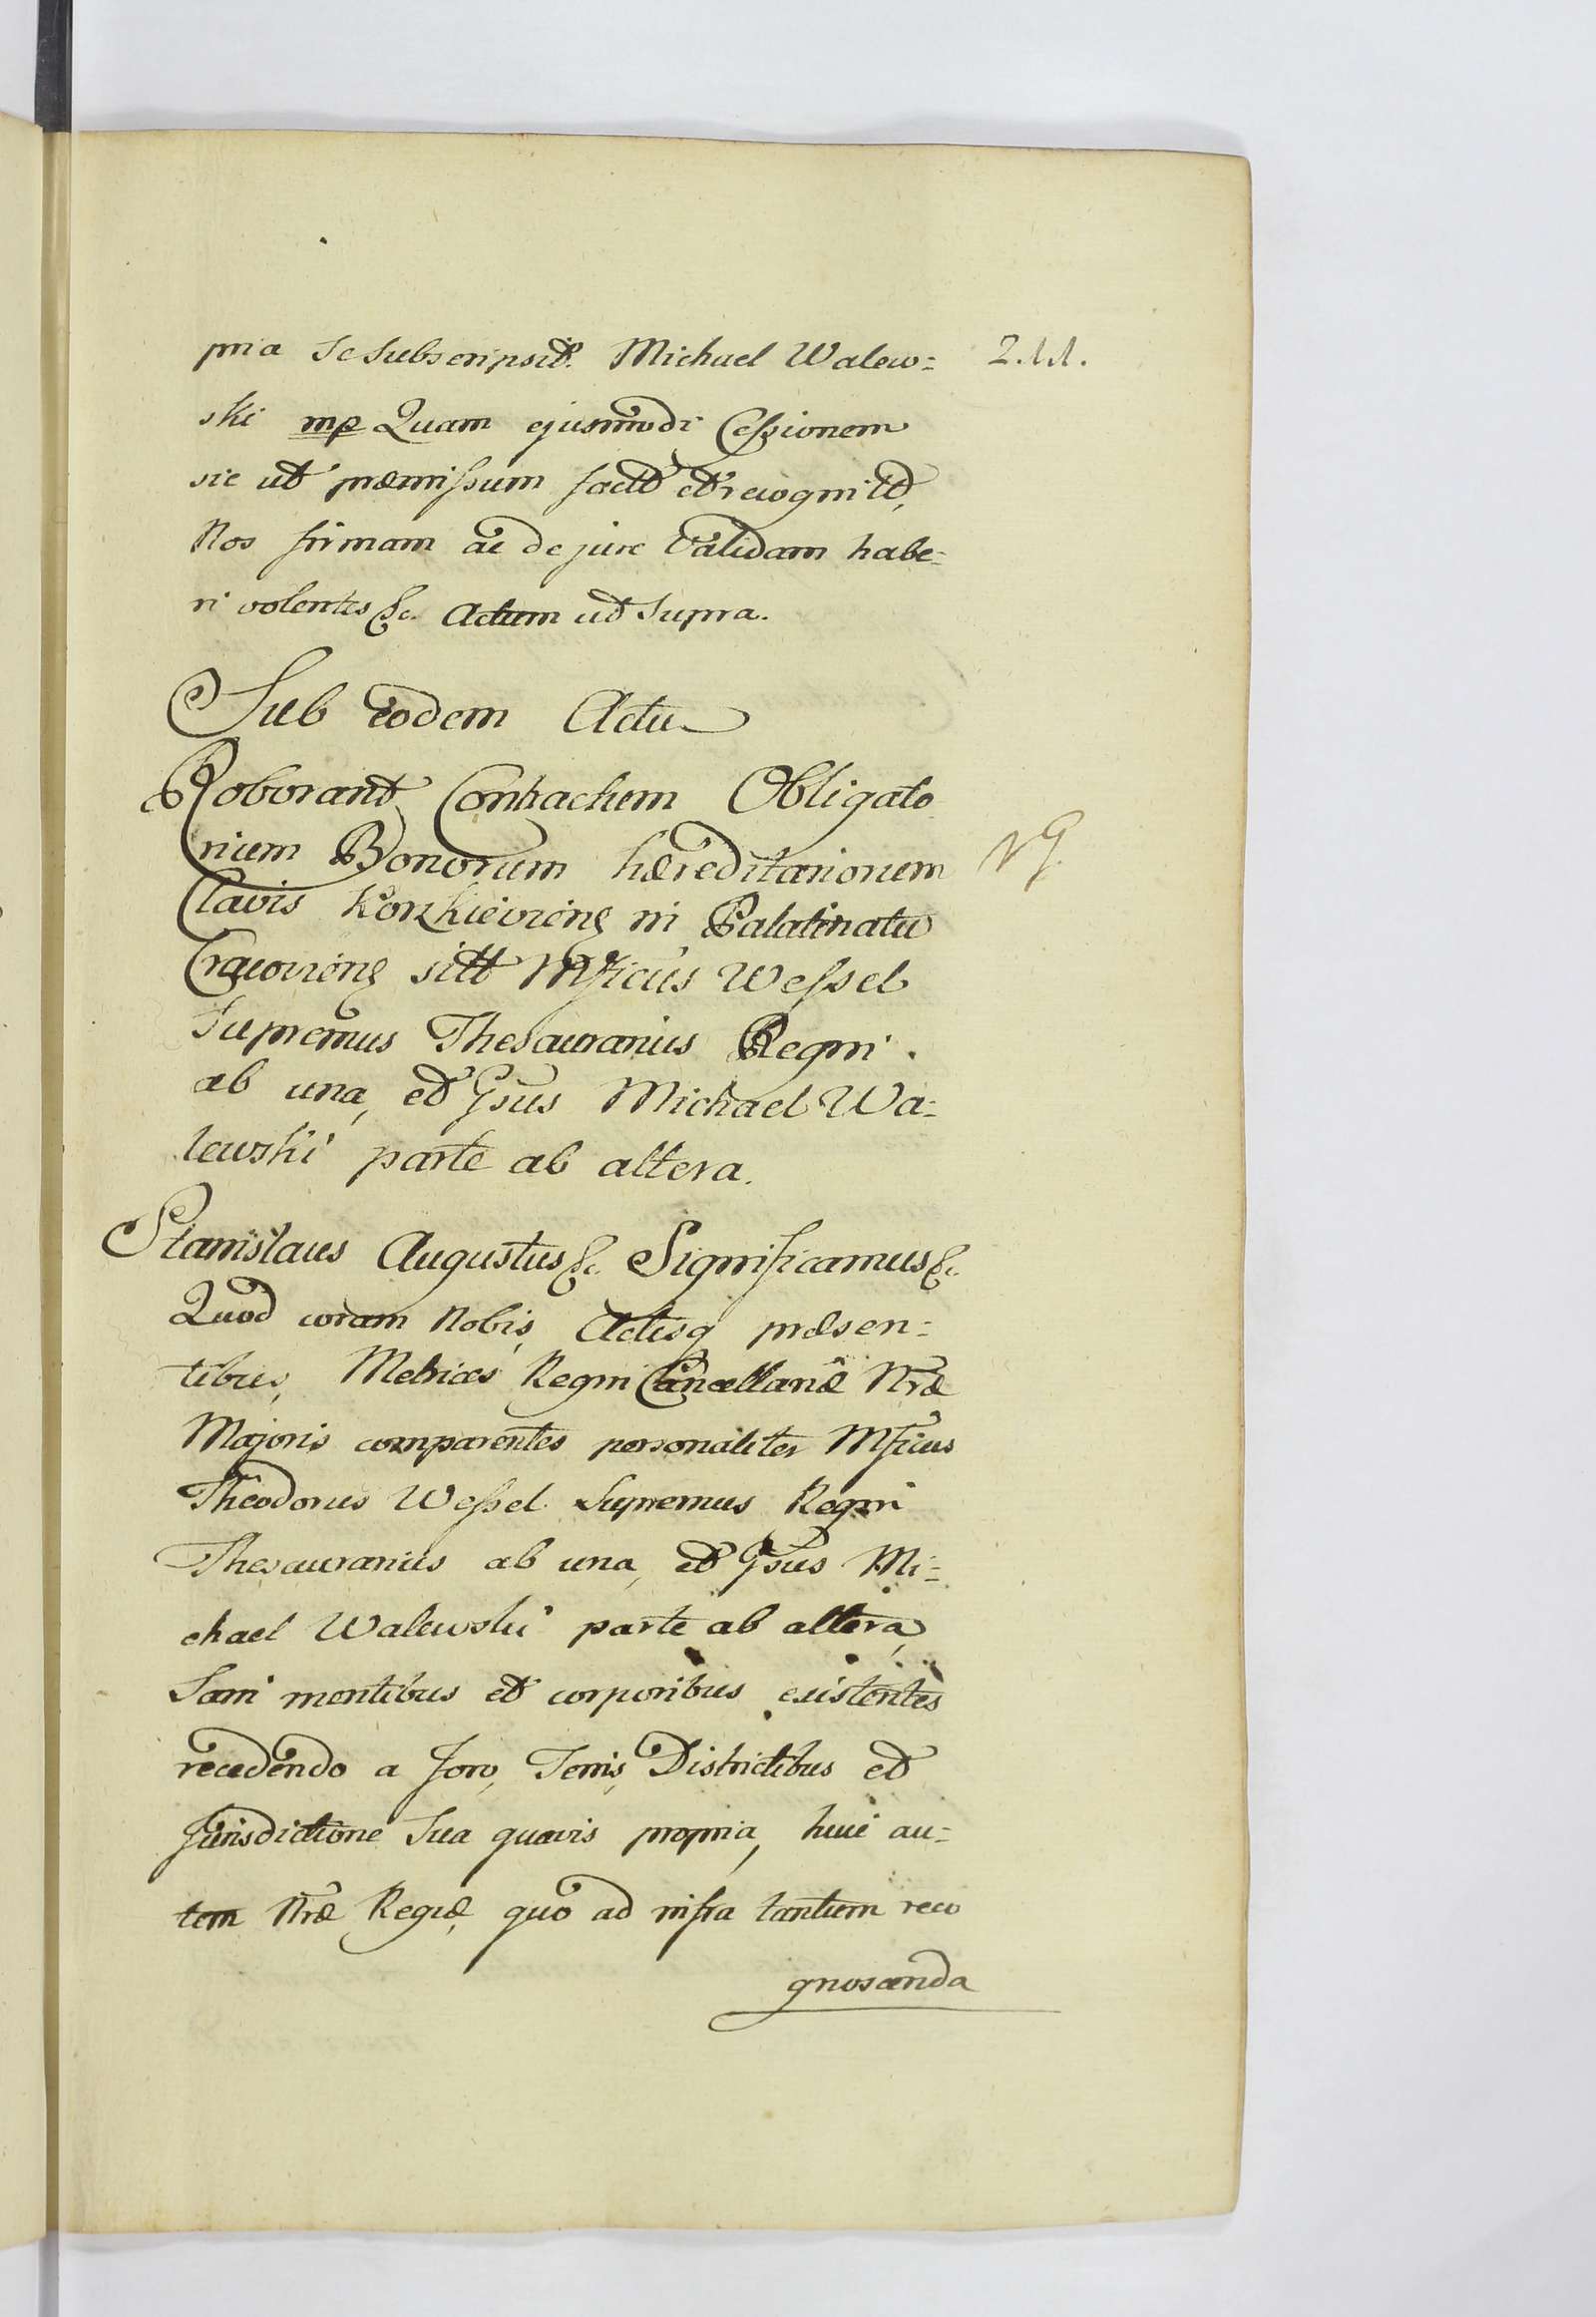 pria se subscripsit. Michael Walew=
ski mp Quam ejusmodi Cessionem
sic ut præmissum fact et recognit,
Nos firmam ac de jure validam habe=
ri volentes &c. Actum ut supra.
Sub eodem Actu
Roborant Contractum Obligato
rium Bonorum hæreditariorum
Clavis in Palatinatu
Cracovien sitt Mficus Wessel
Supremus Thesaurarius Regni
ab una, et Gsus Michael Wa=
lewski parte ab altera.
Stanislaus Augustus &c. Significamus &c.
Quod coram Nobis, Actisq præsen=
tibus, Metrices Regni Cancellariæ Nræ
Majoris comparentes personaliter Mficus
Theodorus Wessel Supremus Regni
Thesaurarius ab una, et Gsus Mi=
chael Walewski parte ab altera,
Sani mentibus et corporibus existentes
recedendo a foro, Terris, Districtibus et
Jurisdictione sua quavis propria, huic au=
tem Nræ Regiæ, quo ad infra tantum reco
gnoscenda